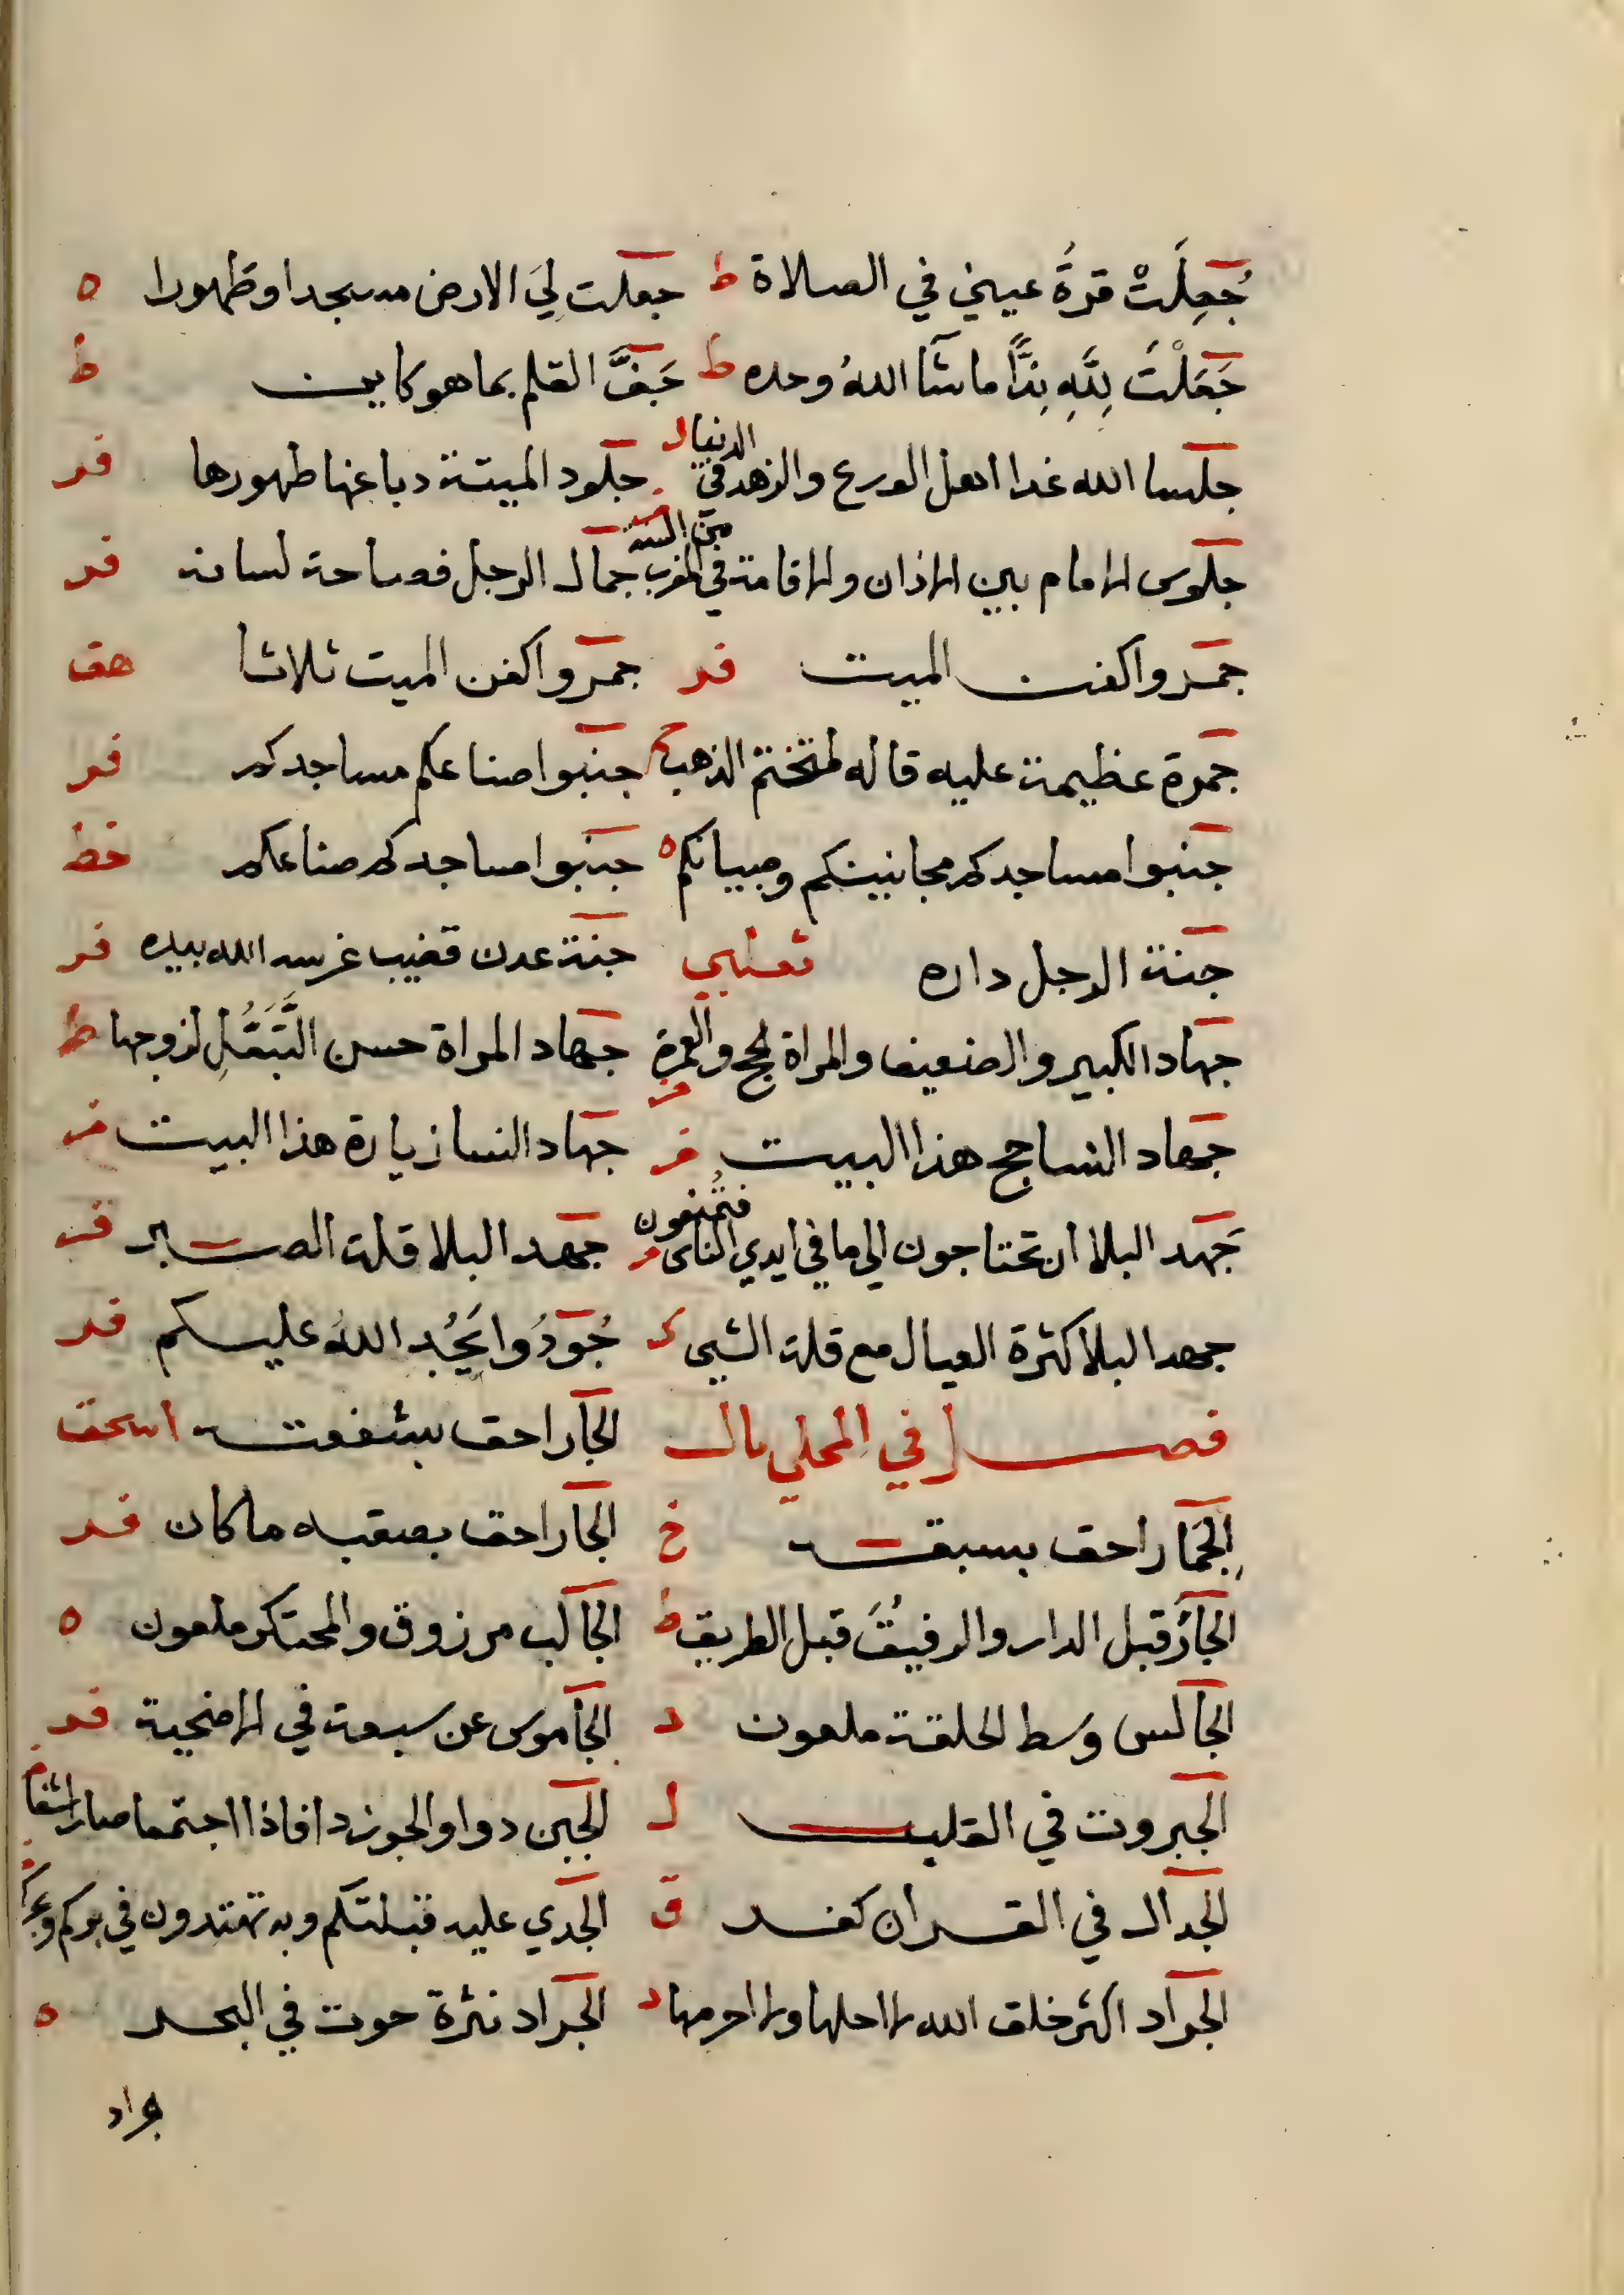 جُعِلَتْ قرةُ عيني في الصلاة ط جعلت لِيَ الارض مسجدا وطهورا ه
جَعَلْتَ لِلَّهِ نِدًّا ما شآا اللهُ وحده ط جَفَّ القلم بما هو كاين ط
جلسا الله غدا اهل الورع والزهد في الدنيا ل جلود الميتة دباغها طهورها فر
جلوس الامام بين الاذان والاقامة في المغرب من السنة جمال الرجل فصاحة لسانه فر
جمروا كفن الميت فر جمروا كفن الميت ثلاثا هق
جمرة عظيمة عليه قاله لمتختم الذهب جنبوا صناعكم مساجدكم فر
جنبوا مساجدكم مجانينكم وصبيانكم ه جنبوا مساجدكم صناعكم خط
جنة الرجل داره جنة عدن قضيب غرسه الله بيده فر
جهاد الكبير والضعيف والمراة لحج والعمرة جهاد المراة حسن التَّبَعُّلِ لزوجها ط
جهاد النسا حج هذا البيت فر جهاد النسا زيارة هذا البيت فر
جَهد البلا ان تحتاجون الي ما في ايدي الناس فتُمنعون جهد البلا قلة الصبر فر
جهد البلا كثرة العيال مع قلة الشيي ك جُودُوا يَجُد اللهُ عليكم فر
فصل في المحلي بال الجار احق بشفعته اسحق
الجار احق بسبقته خ الجار احق بصقبه ما كان فر
الجارُ قبل الدار والرفيقَ قبل الطريق ط الجالب مرزوق والمحتكر ملعون ه
الجالس وسط الحلقة ملعون د الجاموس عن سبعة في الاضحية فر
الجبروت في القلب ل الجبن دوا والجوز دا فاذا اجتمعا صارا شفا
الجدال في القران كفر ق الجدي عليه قبلتكم وبه تهتدون في بركم وبحركم
الجراد اكثر خلق الله لا احلها ولا احرمها د الجراد نثرة حوت في البحر ه
جراد